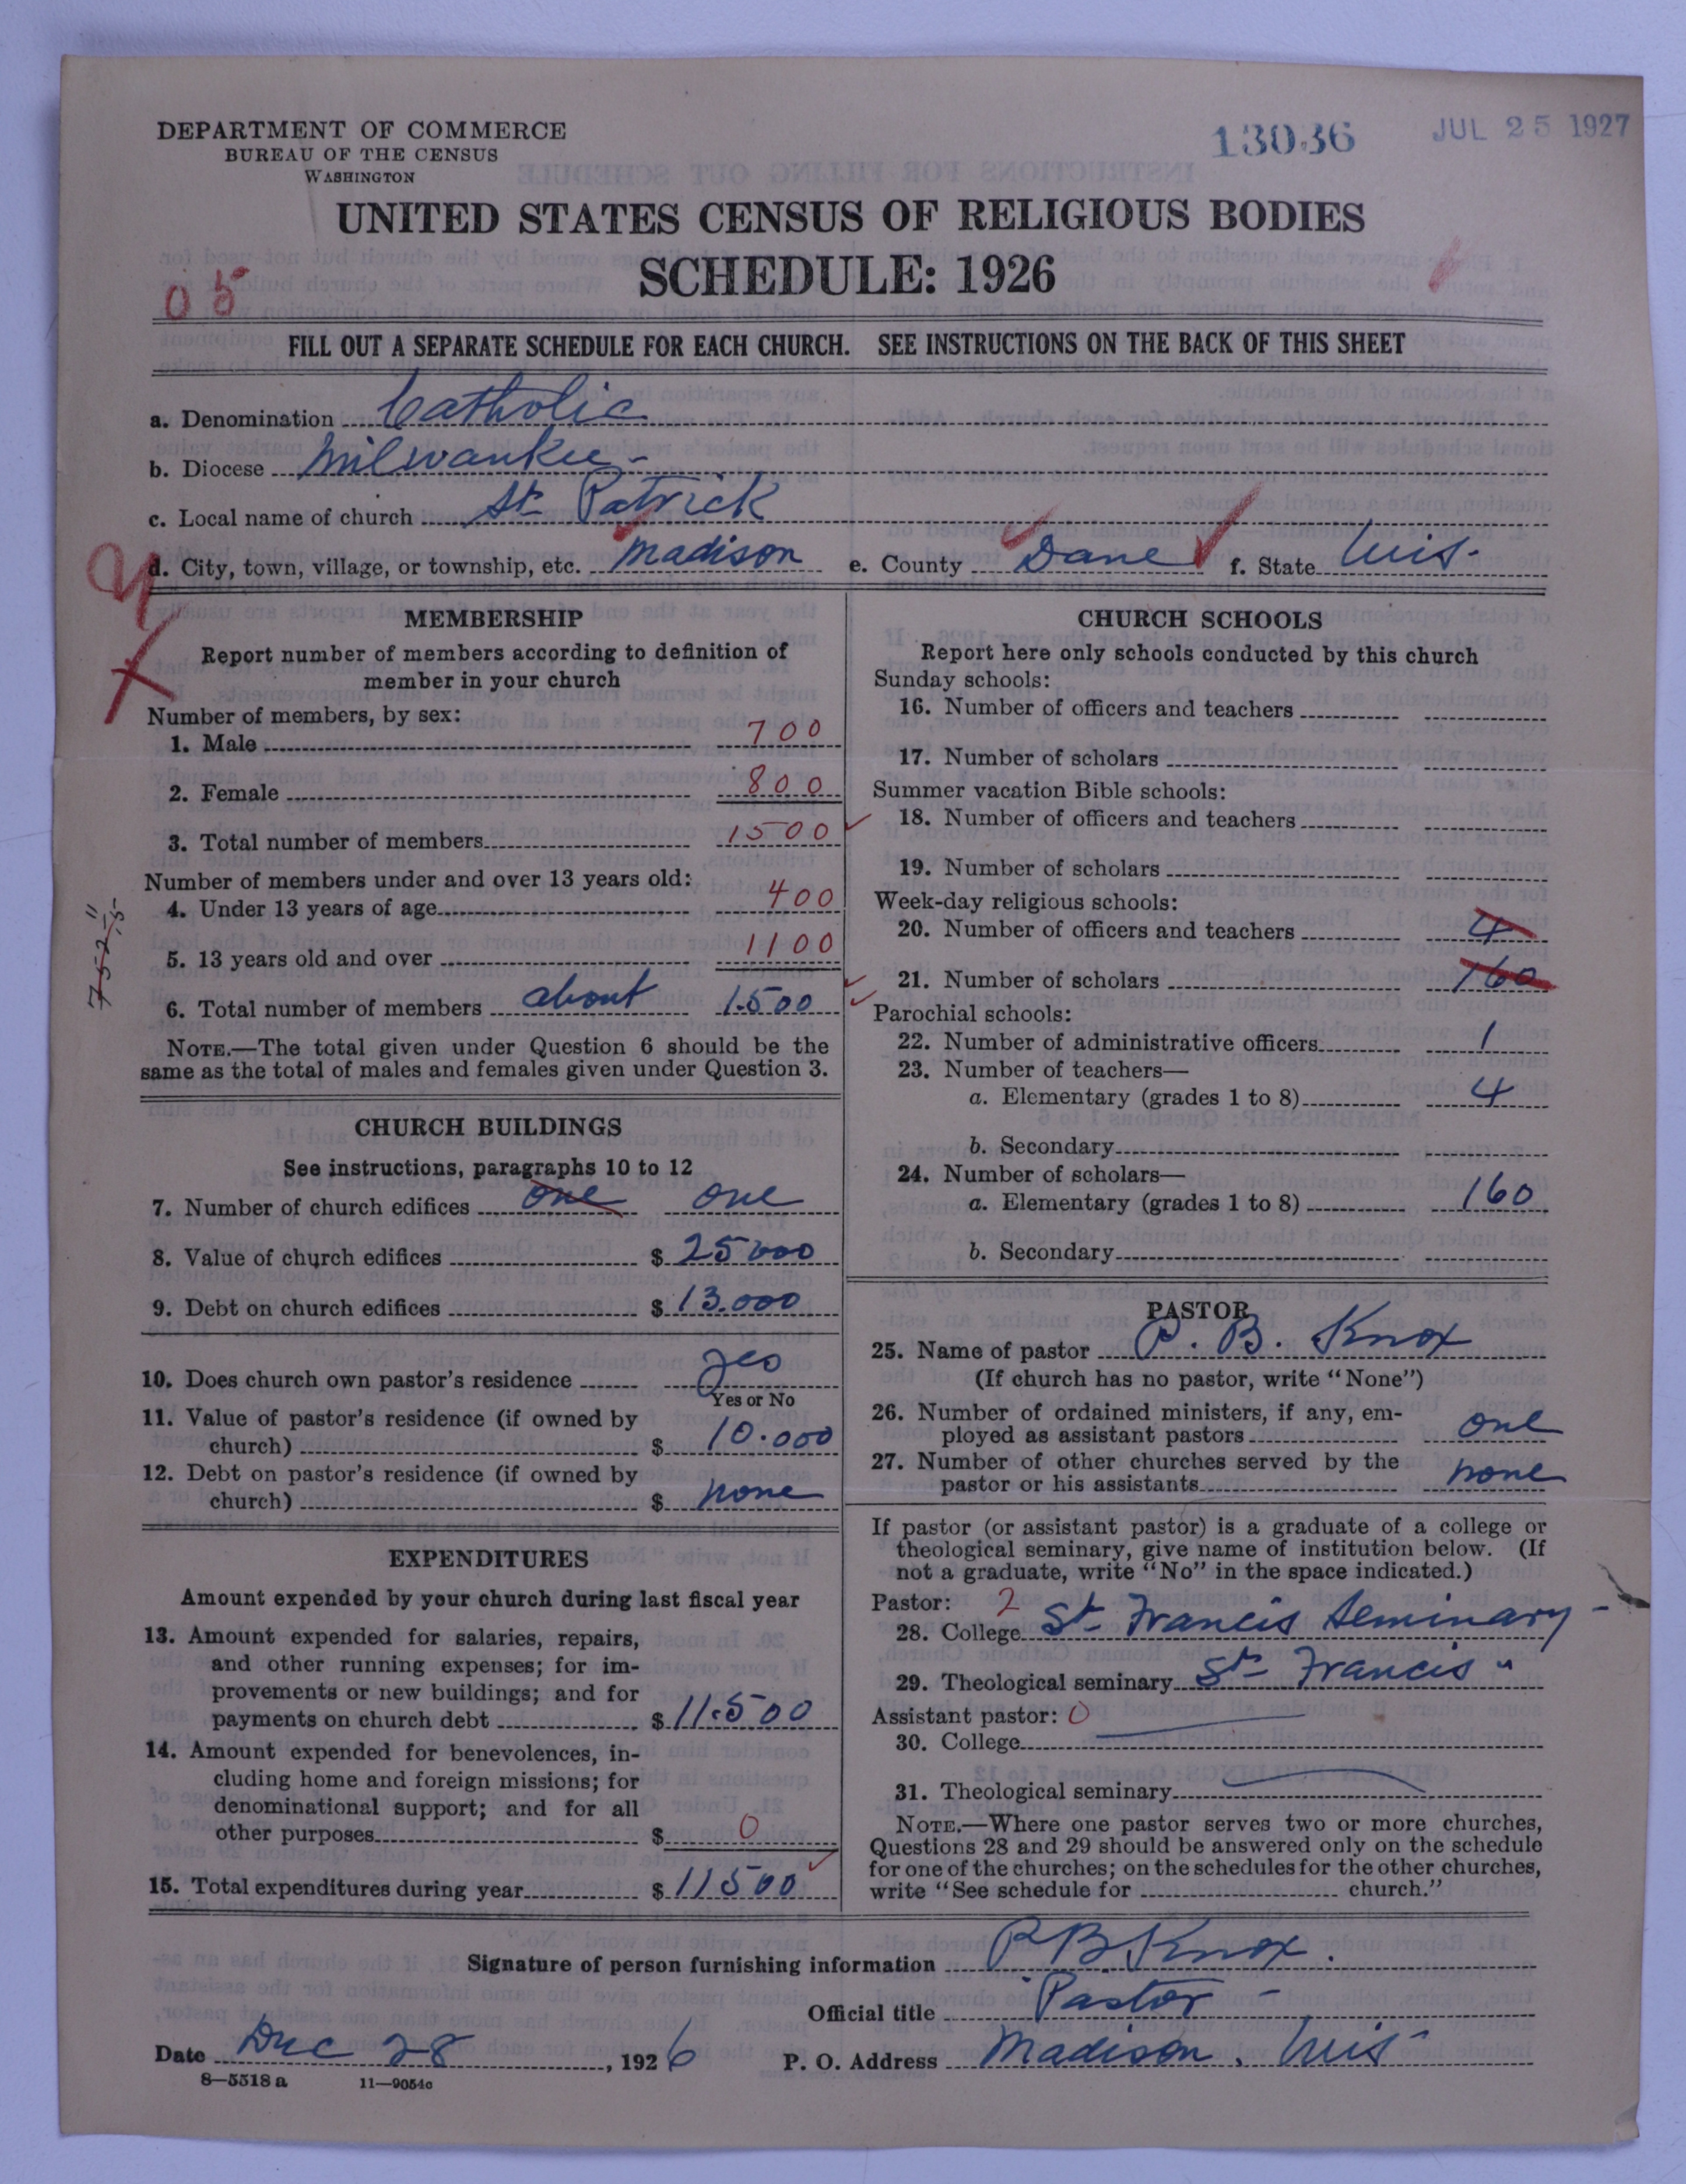 DEPARTMENT OF COMMERCE
BUREAU OF THE CENSUS
WASHINGTON
13036
JUL 25 1927
UNITED STATES CENSUS OF RELIGIOUS BODIES
SCHEDULE: 1926
05
FILL OUT A SEPARATE SCHEDULE FOR EACH CHURCH. SEE INSTRUCTIONS ON THE BACK OF THIS SHEET
a. Denomination Catholic
b. Diocese Milwaukee-
c. Local name of church St Patrick
d. City, town, village, or township, etc. Madison e. County Dane f. State Wis-
MEMBERSHIP
Report number of members according to definition of
member in your church
Number of members, by sex:
1. Male 700
2. Female 800
3. Total number of members 1500
Number of members under and over 13 years old:
4. Under 13 years of age 400
5. 13 years old and over 1100
6. Total number of members about 1.500
NOTE.—The total given under Question 6 should be the
same as the total of males and females given under Question 3.
CHURCH BUILDINGS
See instructions, paragraphs 10 to 12
7. Number of church edifices one one
8. Value of church edifices $ 25000
9. Debt on church edifices $ 13.000
10. Does church own pastor's residence yes
Yes or No
11. Value of pastor's residence (if owned by
church) $ 10.000
12. Debt on pastor's residence (if owned by
church) $ none
EXPENDITURES
Amount expended by your church during last fiscal year
13. Amount expended for salaries, repairs,
and other running expenses; for im-
provements or new buildings; and for
payments on church debt $ 11.500
14. Amount expended for benevolences, in-
cluding home and foreign missions; for
denominational support; and for all
other purposes $ 0
15. Total expenditures during year $ 11500
CHURCH SCHOOLS
Report here only schools conducted by this church
Sunday schools:
16. Number of officers and teachers
17. Number of scholars
Summer vacation Bible schools:
18. Number of officers and teachers
19. Number of scholars
Week-day religious schools:
20. Number of officers and teachers 4
21. Number of scholars 160
Parochial schools:
22. Number of administrative officers 1
23. Number of teachers—
a. Elementary (grades 1 to 8) 4
b. Secondary
24. Number of scholars—
a. Elementary (grades 1 to 8) 160
b. Secondary
PASTOR
25. Name of pastor P. B. Knox
(If church has no pastor, write "None")
26. Number of ordained ministers, if any, em-
ployed as assistant pastors one
27. Number of other churches served by the
pastor or his assistants none
If pastor (or assistant pastor) is a graduate of a college or
theological seminary, give name of institution below. (If
not a graduate, write "No" in the space indicated.)
Pastor: 2
28. College St Francis Seminary-
29. Theological seminary St- Francis "
Assistant pastor: 0
30. College
31. Theological seminary
NOTE.—Where one pastor serves two or more churches,
Questions 28 and 29 should be answered only on the schedule
for one of the churches; on the schedules for the other churches,
write "See schedule for church."
Signature of person furnishing information P B Knox.
Official title Pastor-
Date Dec 28, 1926 P. O. Address Madison, Wis-
8—5518 a 11—9054c